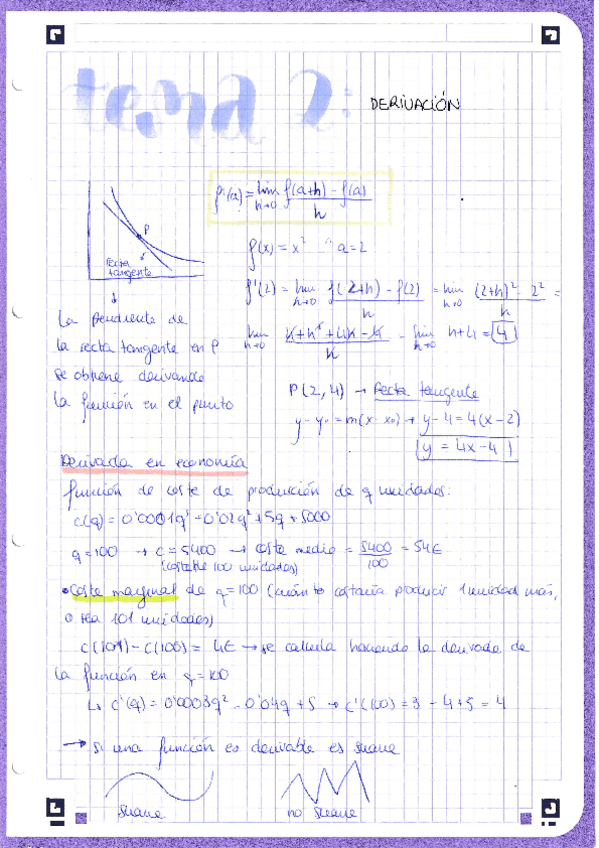 tema 2: DERIVACIÓN
f'(a) = lim h→0 f(a+h) - f(a) / h
P
recta
tangente
f(x) = x² a=2
f'(2) = lim h→0 f(2+h) - f(2) / h = lim h→0 (2+h)² - 2² / h =
lim h→0 4+h²+4h-4 / h = lim h→0 h+4 = 4
La pendiente de
la recta tangente en P
se obtiene derivando
la función en el punto
P(2,4) → Recta tangente
y-y₀ = m(x-x₀) → y-4 = 4(x-2)
y = 4x-4
Derivada en economía
función de coste de producción de q unidades:
c(q) = 0'0001q³ - 0'02q² + 5q + 5000
q = 100 → c = 5400 → coste medio = 5400/100 = 54€
(coste de 100 unidades)
• Coste marginal de q = 100 (cuánto costaría producir 1 unidad más,
o sea 101 unidades)
c(101) - c(100) = 4€ → se calcula haciendo la derivada de
la función en q = 100
↳ c'(q) = 0'0003q² - 0'04q + 5 → c'(100) = 3 - 4 + 5 = 4
→ si una función es derivable es suave
suave no suave